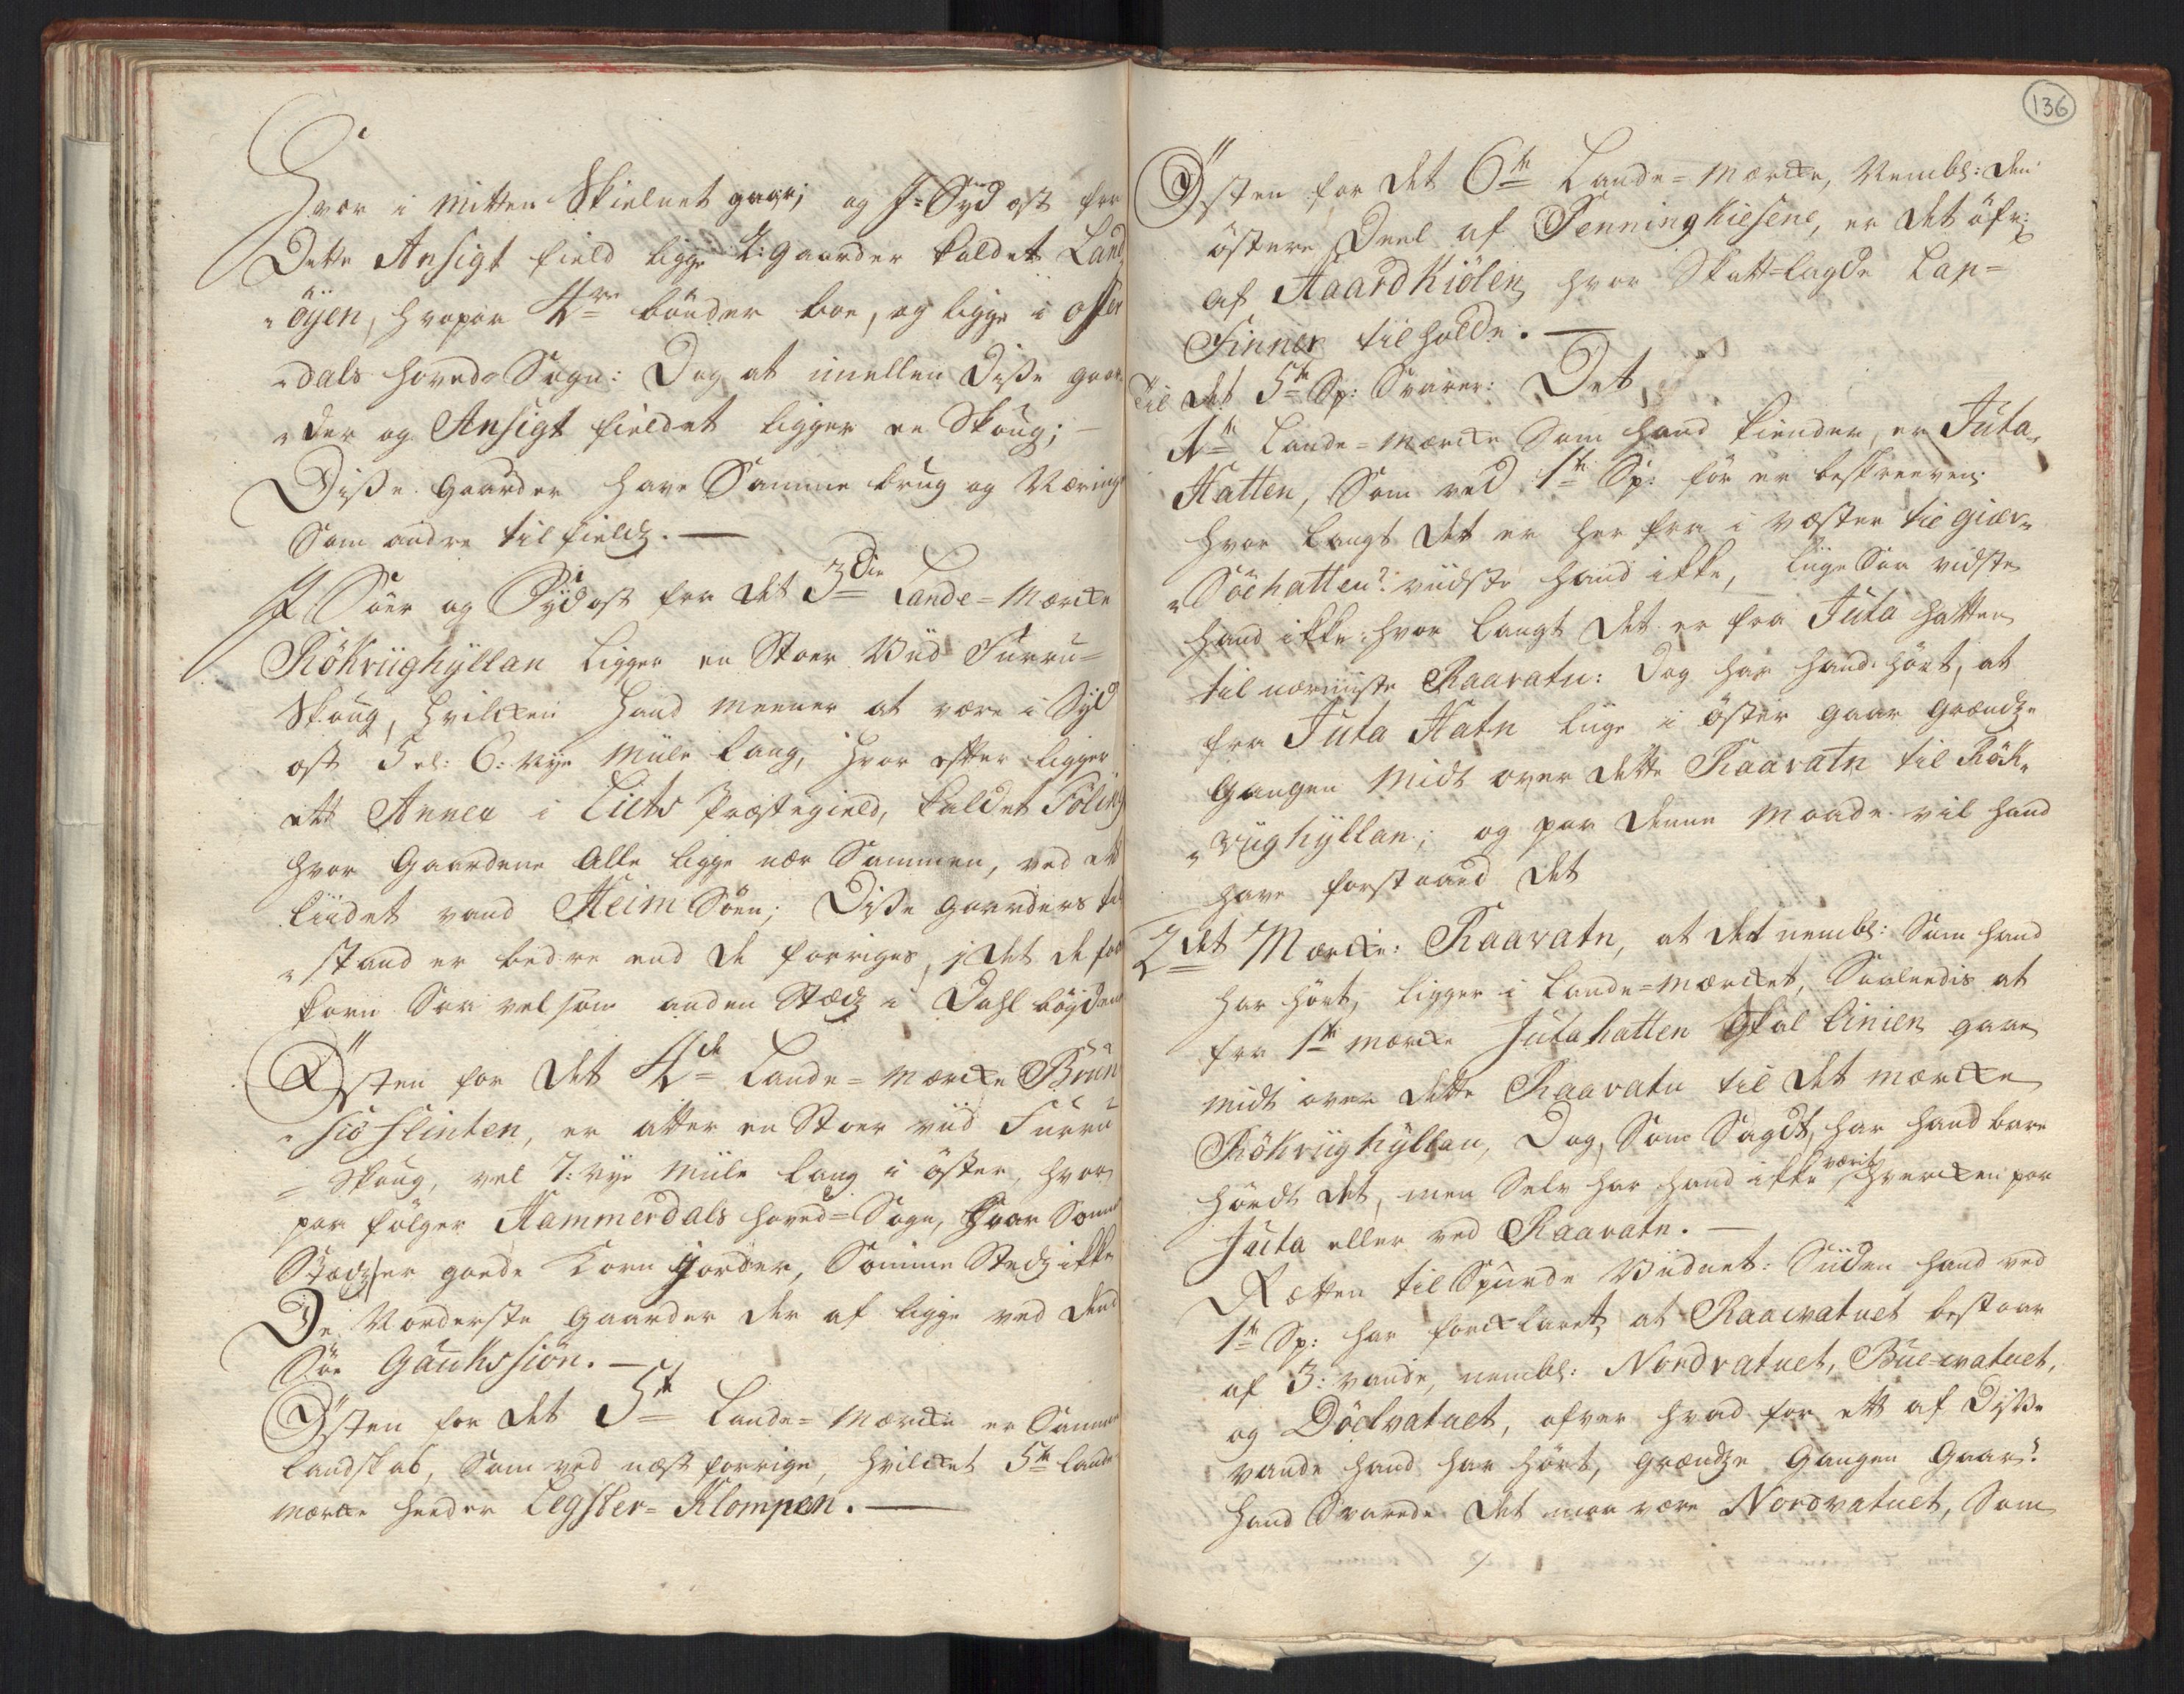 Hvor i mitten Skielnet gaar; og I Syd ost fra
Dette Ansigt field ligge 2: gaarder kaldet Land
„öyen, hvorpaa 4re bönder boe, og ligge i Offer
„dals hoved-Sogn: Dog at imellem Disse gaar
„der og Ansigt fieldet ligger en Skoug; —
Disse gaarder have Samme brug og Næring
Som andre til fields. —
I Söer og Sydost for det 3die Lande-Mærcke
Rökriighyllan ligger en Stoer Viid Furru=
Skoug, hvilcken hand meener at være i Syd
ost 5 el: 6: nye Miile lang, hvor efter ligger
ett Annex i Liets Præstegield, kaldet Föling
hvor Gaardene Alle ligge nær Sammen, ved et
liidet vand Heim Söen; Disse gaarders til
„stand er bedre end de forriges, i det de faa
korn Saa vel som anden Stædz i Dahl böyden
Östen for det 4de Lande-Mærcke Brun
„siö flinten, er atter en Stoer viid Furru
= Skoug, vel 7: nye Miile lang i öster, hvor
paa fölger Hammerdals hoved-Sogn, hvor Somme
Stædz er goede Korn Jorder, Somme Stedz ikke
De Norderste gaarder der af ligge ved Den
Söe Gaukssiön. —
Östen for det 5te Lande-Mærcke er Samme
Landskab, Som ved næst forrige, hvilcket 5te Lande
mærcke heeder Legster-Klompen. —
136
Östen for det 6te Lande-Mærcke, Nembl: den
östere Deel af Penningkiesene, er det öfr:
af Haardkiölen, hvor Skatt-lagde Lap=
Finner tilholde. —
Til det 5te Sp: Svarer: Det
1te Lande-Mærcke Som hand kiender, er Juta„
Hatten, Som ved 1te Sp: för er beskreeven;
hvor langt det er her fra i væster til Giær„
„Söehatten? viidste hand ikke, liige Saa vidste
hand ikke: hvor langt det er fra Juta hatten
til nærmiste Raavatn: Dog har hand hört, at
fra Juta Hatn liige i öster gaar grændze
gangen Midt over dette Raavatn til Rök„
„riighyllan; og paa denne Maade vil hand
have forstaaed det
2det Mærcke: Raavatn, at det nembl: Som hand
har hört, ligger i Lande-mærcket, Saaledis at
fra 1te mærcke Jutahatten Skal linien gaae
midt over dette Raavatn til det mærcke
Rökriighyllan, Dog, Som Sagdt, har hand bare
hördt det, men Selv har hand ikke værit hvercken paa
Juta eller ved Raavatn. —
Retten tilSpurde Viidnet: Siiden hand ved
1te Sp: har forcklaret, at Raavatnet bestaar
af 3: vande, nembl: Nordvatnet, Bue-vatnet,
og Döelvatnet, ofver hvad for ett af Disse
vande hand har hört, grændze Gangen Gaar?
hand Svarede det maa være Nordvatnet, Som